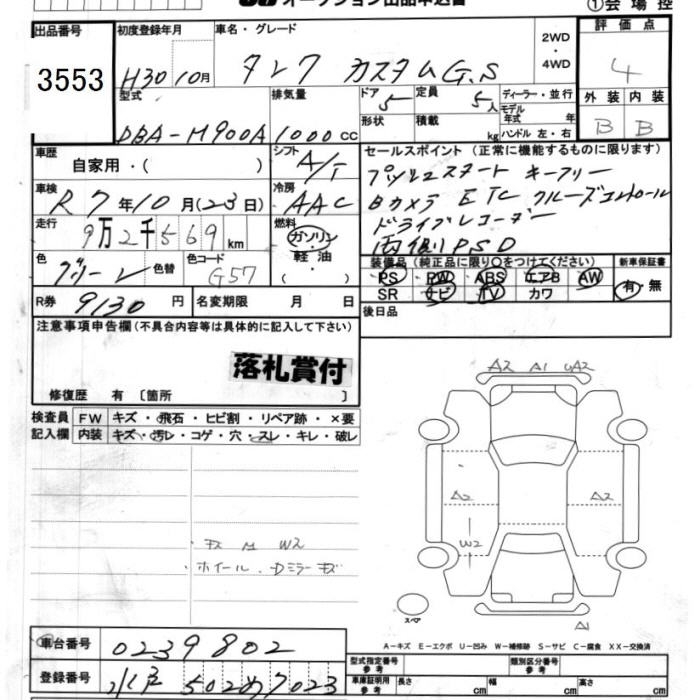 オークション出品申込書 ①会場控
出品番号 3553
初度登録年月 H30 10月
車名・グレード タンク カスタムG.S
2WD・4WD
評価点 4
外装 B 内装 B
型式 DBA-M900A
排気量 1000cc
ドア 5
定員 5人
ディーラー・並行
形状
積載 kg
モデル年式 年
ハンドル 左・右
車歴 自家用・( )
シフト A/T
車検 R7年10月(23日)
冷房 AAC
走行 9万2千569km
燃料 ガソリン・軽油・( )
色 グリーン 色替
色コード G57
R券 9130円
名変期限 月 日
セールスポイント(正常に機能するものに限ります)
プッシュスタート キーフリー
Bカメラ ETC クルーズコントロール
ドライブレコーダー
両側PSD
装備品(純正品に限り○をつけてください)
PS PW ABS エアB AW
SR ナビ TV カワ
新車保証書 有・無
後日品
注意事項申告欄(不具合内容等は具体的に記入して下さい)
落札賞付
修復歴 有〔箇所 〕
検査員記入欄
FW キズ・飛石・ヒビ割・リペア跡・×要
内装 キズ・汚レ・コゲ・穴・スレ・キレ・破レ
A2 A1 UA2
A2 A2
W2
・キズ M W2
・ホイール・Dミラーキズ
スペア
A1
A-キズ E-エクボ U-凹み W-補修跡 S-サビ C-腐食 XX-交換済
車台番号 0239802
登録番号 水戸 502 め 7023
型式指定番号 参考
類別区分番号 参考
車庫証明用参考 長さ cm 幅 cm 高さ cm